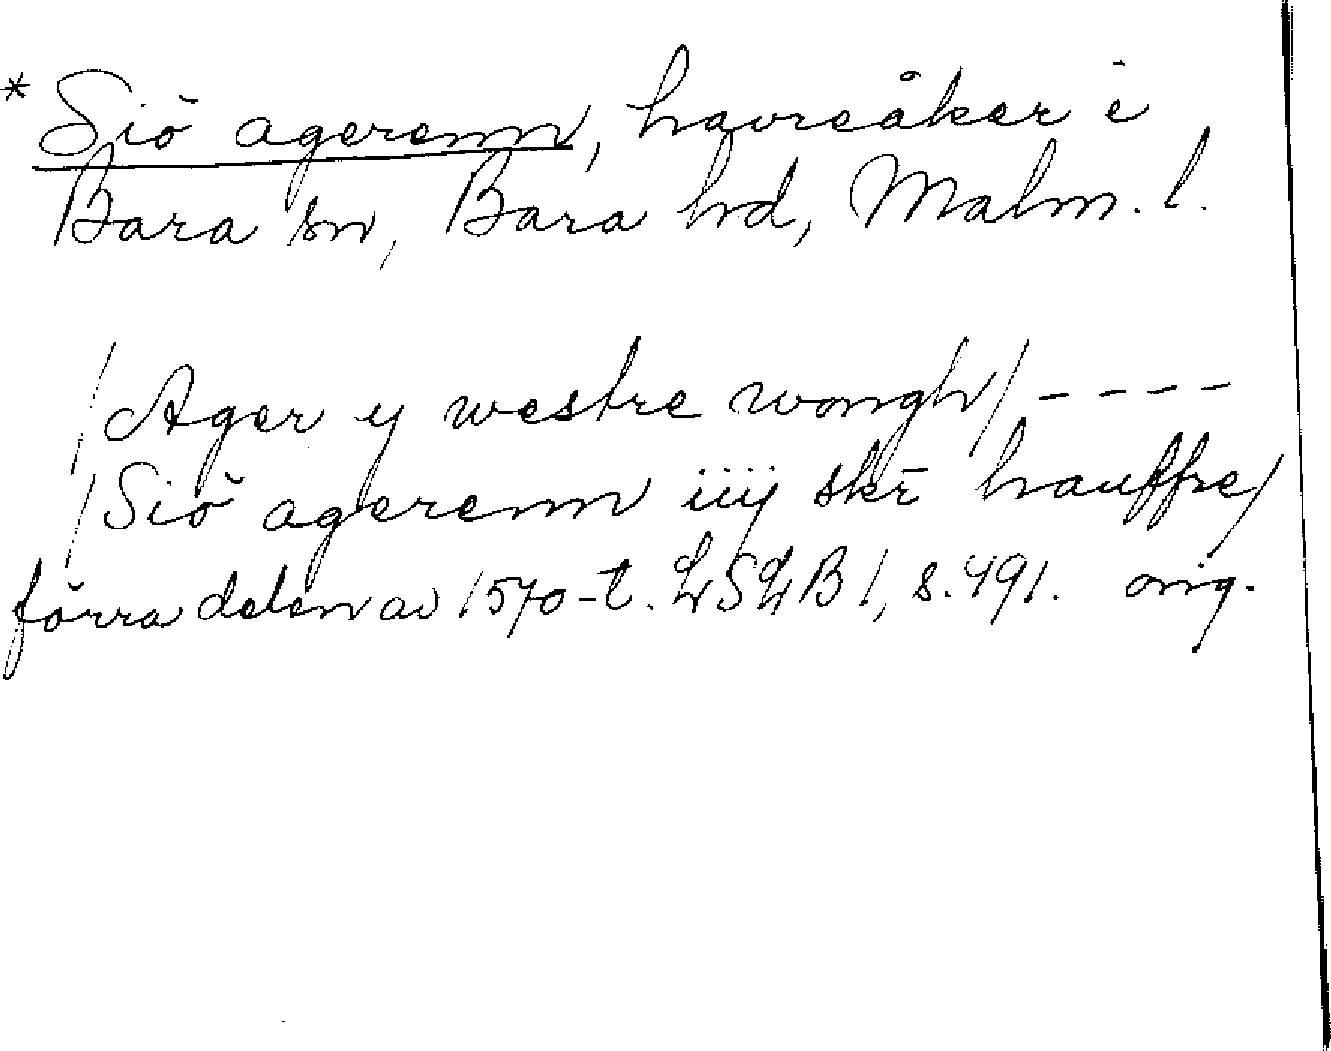 * Siö agerenn, havreåker i
Bara sn, Bara hd, Malm. l.
/Ager y westre wongh/ ----
/Siö agerenn iiij skr̄ hauffre/
förra delen av 1570-t. LSLB 1, s. 491. orig.